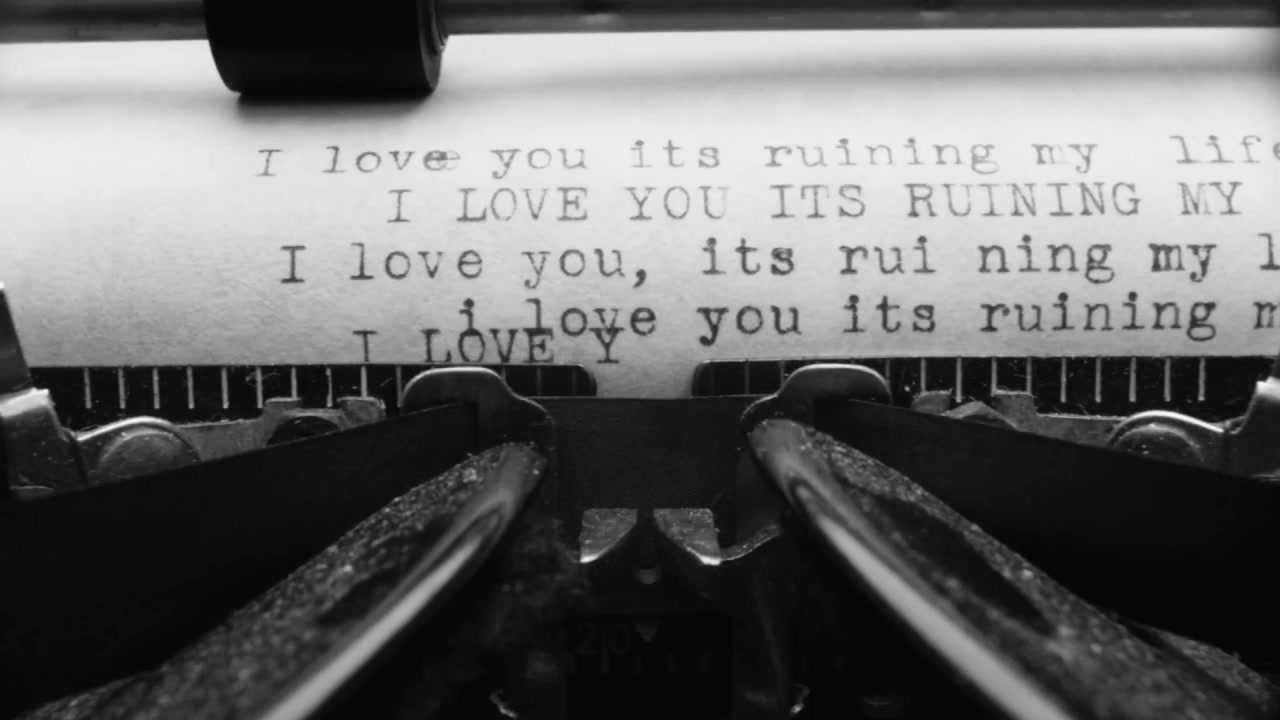 I love you its ruining my life
I LOVE YOU ITS RUINING MY
I love you, its rui ning my l
i love you its ruining m
I LOVE Y